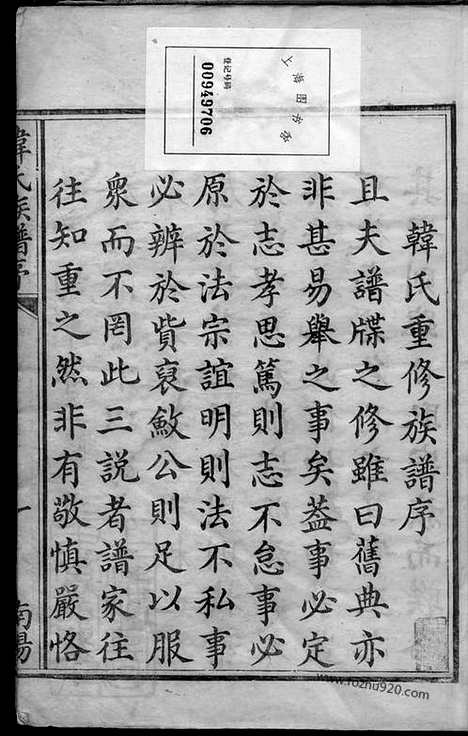 韓氏重修族譜序
且夫譜牒之修雖曰舊典亦
非甚易舉之事矣葢事必定
於志孝思篤則志不怠事必
原於法宗誼明則法不私事
必辨於貲裒斂公則足以服
衆而不罔此三說者譜家往
往知重之然非有敬慎嚴恪
韓氏族譜序
一
南陽
上海图书馆
登记号码
00949706
www.rozhu920.com